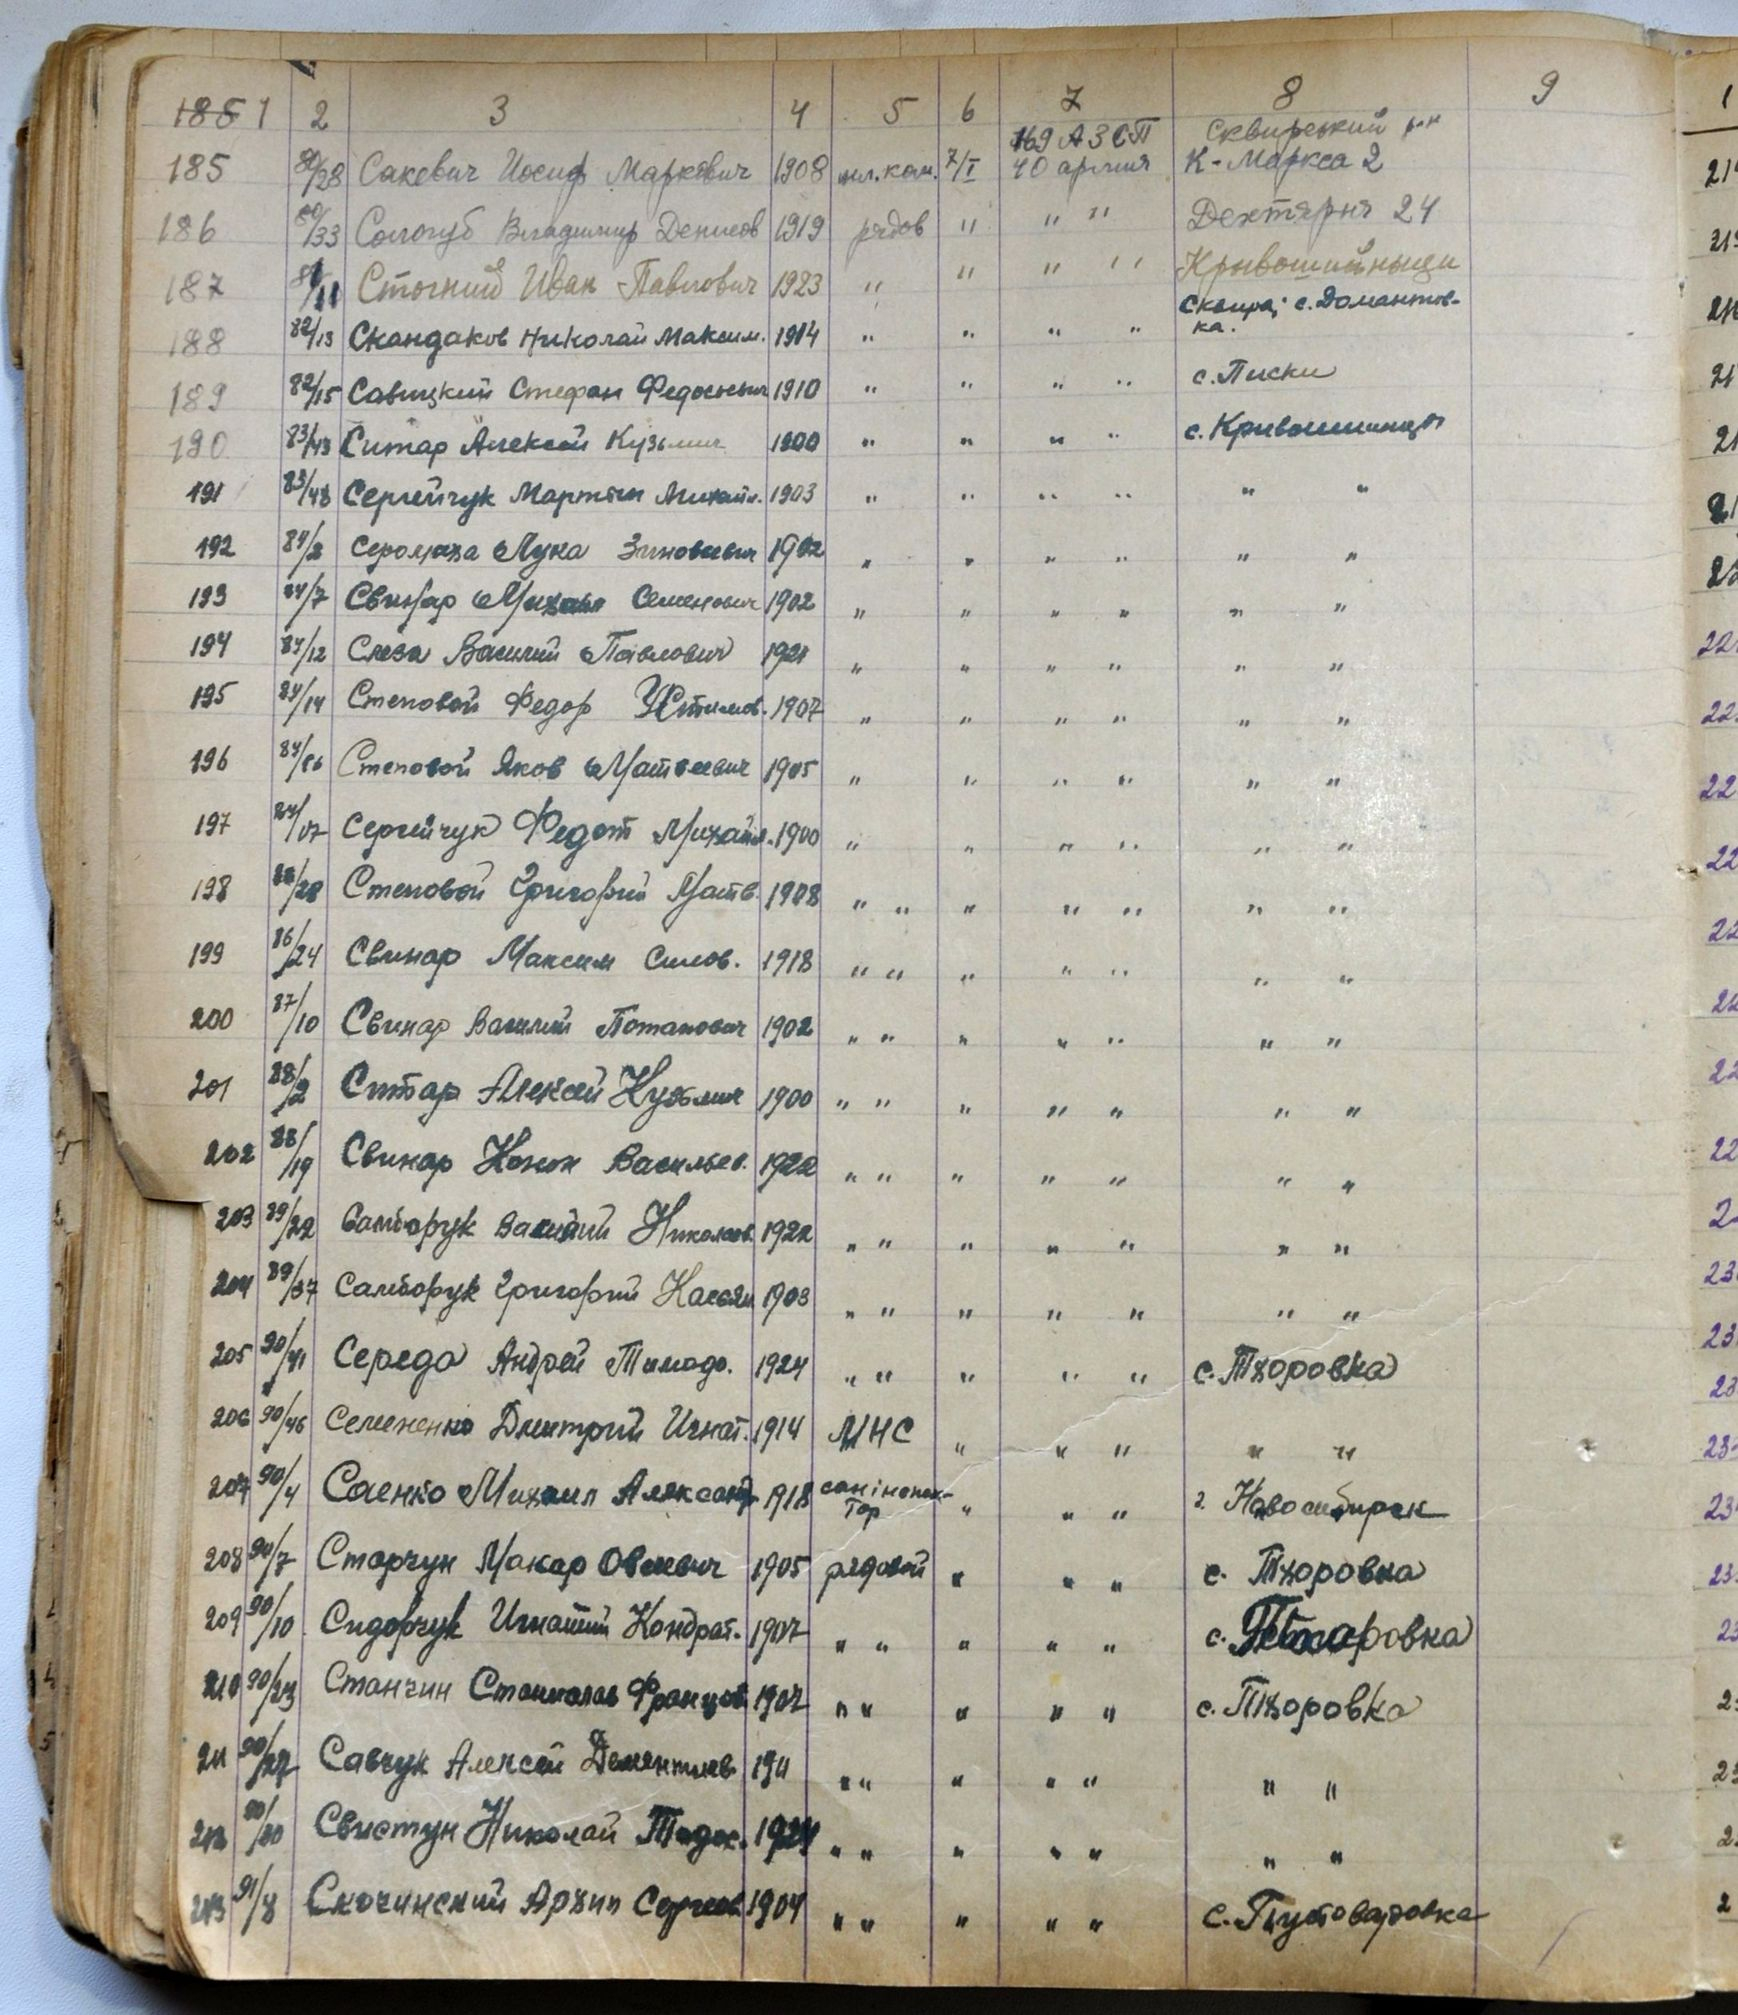 185 1 2 3 4 5 6 7 8 9
169 АЗСП Сквирский р-н
185 80/28 Сакевич Иосиф Маркович 1908 мл.ком. 7/I 40 армия К-Маркса 2
186 80/33 Сологуб Владимир Денисов 1919 рядов " " " Дехтярня 24
187 81/11 Стогний Иван Павлович 1923 " " " " Крывошийныци
188 82/13 Скандаков Николай Максим. 1914 " " " " Сквира; с. Домантов-
ка.
189 82/15 Савицкий Стефан Федосиевич 1910 " " " " с. Писки
190 83/43 Ситар Алексей Кузьмич 1900 " " " " с. Кривошиинцы
191 83/48 Сергейчук Мартын Михайл. 1903 " " " " " "
192 84/2 Лука Зиновеевич 1902 " " " " " "
193 84/7 Свинар Михаил Семенович 1902 " " " " " "
194 84/12 Слеза Василий Павлович 1921 " " " " " "
195 84/14 Степовой Федор Устимов. 1907 " " " " " "
196 84/16 Степовой Яков Матвеевич 1905 " " " " " "
197 84/17 Сергейчук Федот Михайл. 1900 " " " " " "
198 /28 Степовой Григорий Матв. 1908 " " " " " " "
199 86/24 Свинар Максим Силов. 1918 " " " " " " "
200 87/10 Свинар Василий Потапович 1902 " " " " " " "
201 88/2 Ситар Алексей Кузьмич 1900 " " " " " " "
202 88/19 Свинар Конон Васильев. 1922 " " " " " " "
203 89/22 Самборук Василий Николаев. 1922 " " " " " " "
204 89/37 Самборук Григорий Касьян 1903 " " " " " " "
205 90/41 Середа Андрей Тимофе. 1924 " " " " " с. Тхоровка
206 90/46 Семененко Дмитрий Игнат. 1914 МНС " " " " "
207 90/4 Саенко Михаил Александр. 1918 санінспек- " " " г. Новосибирск
тор
208 90/7 Старчук Макар Овсиевич 1905 рядовой " " " с. Тхоровка
209 90/10 Сидорчук Игнатий Кондрат. 1907 " " " " " с.
210 90/23 Станчин Станислав Францов. 1907 " " " " " с. Тхоровка
211 90/27 Савчук Алексей Дементиев. 1911 " " " " " " "
212 90/30 Свистун Николай Тодос. 1924 " " " " " " "
213 91/8 Скочинский Архип Сергеев. 1904 " " " " " с. Пустоваровка